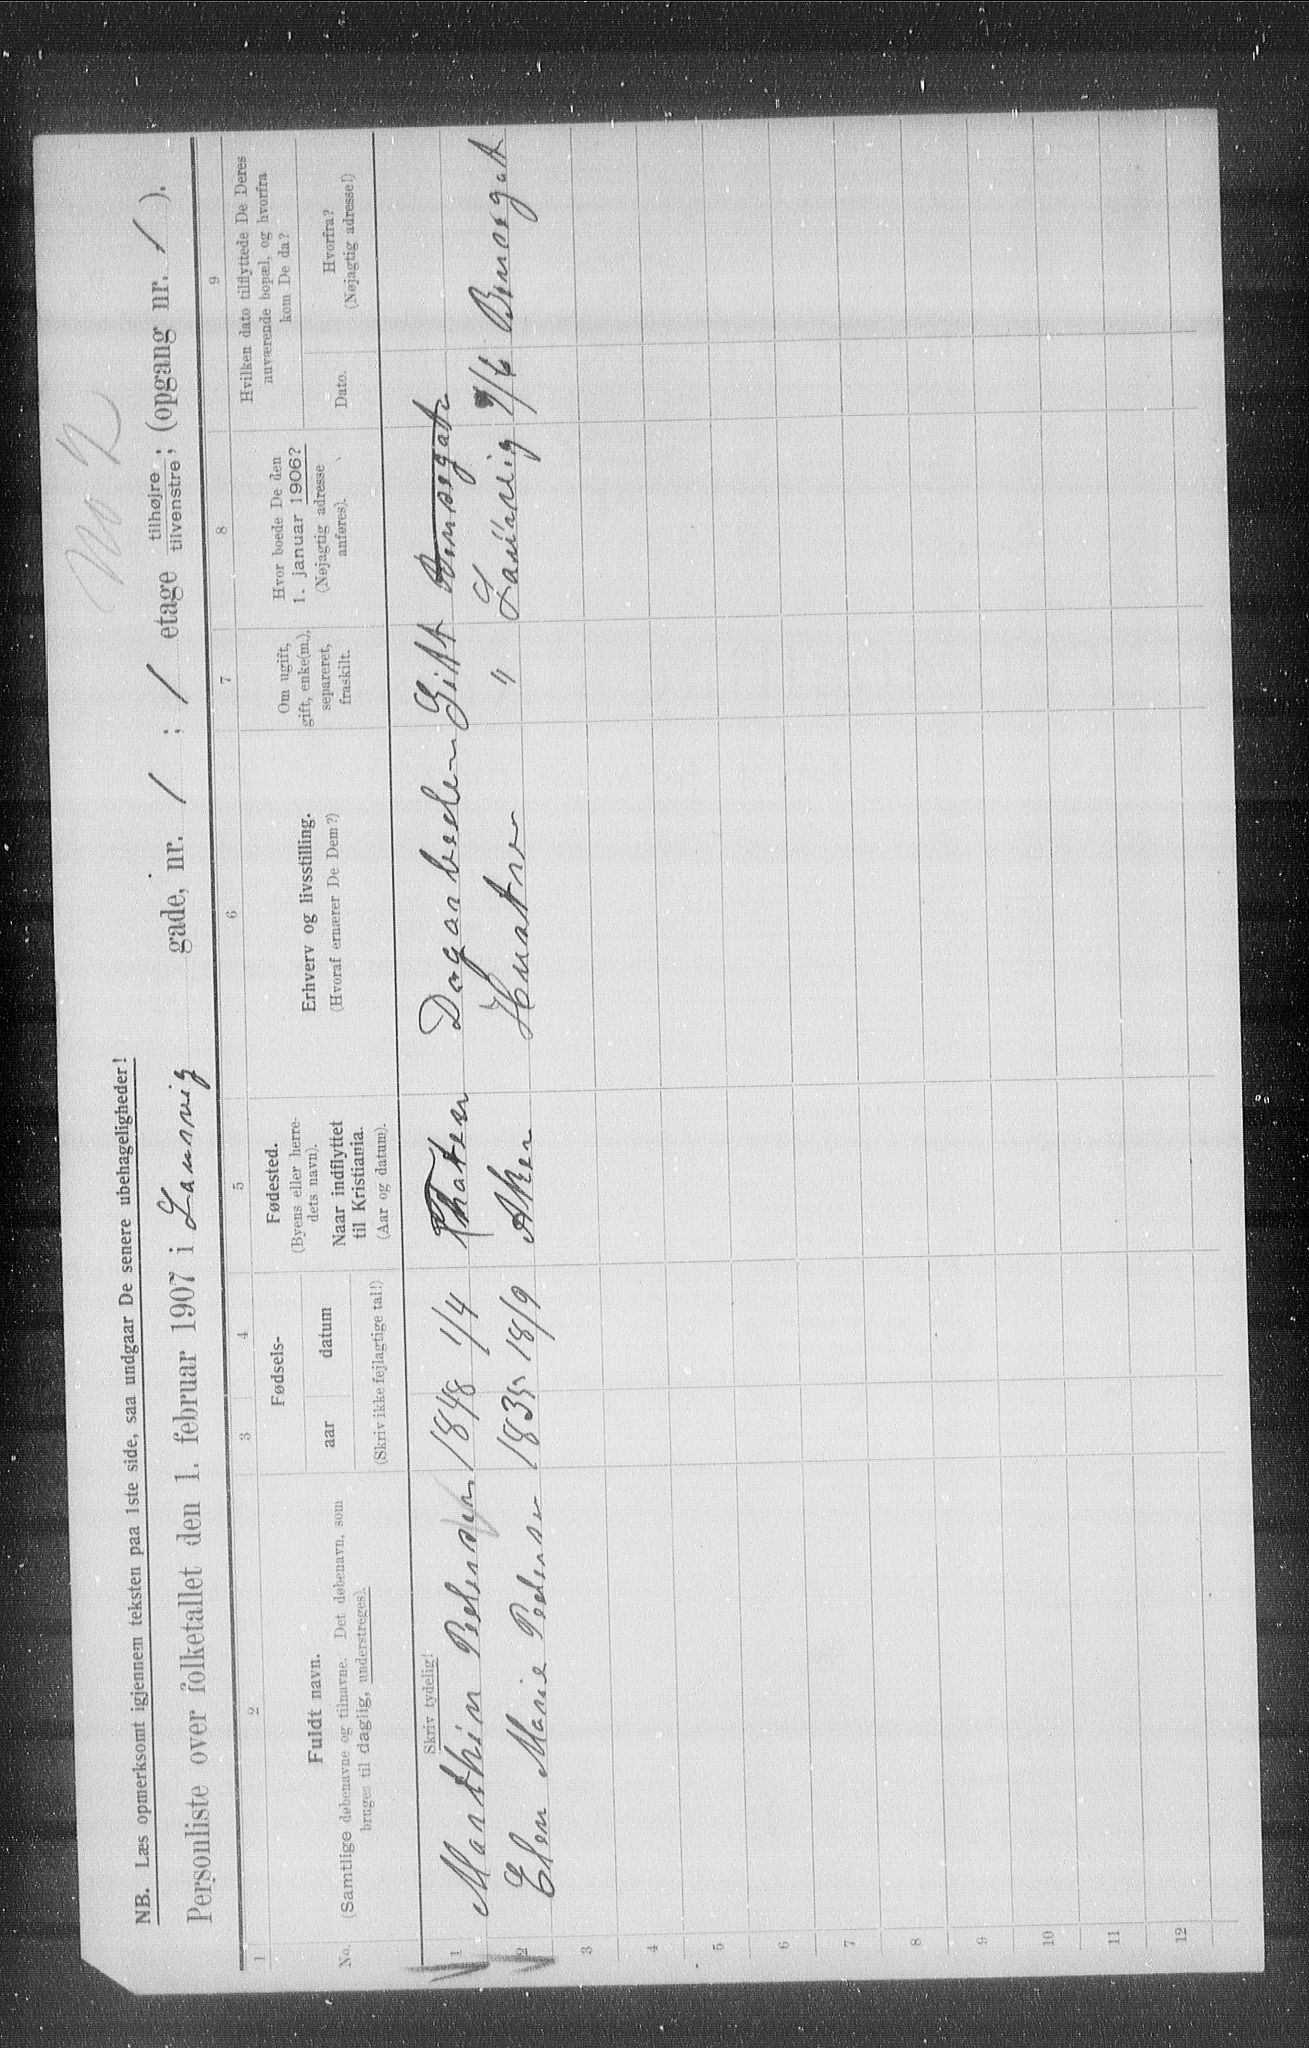 No 2
NB. Læs opmerksomt igjennem teksten paa 1ste side, saa undgaar De senere ubehageligheder!
Personliste over folketallet den 1. februar 1907 i Lansvig gade, nr. 1; 1 etage tilhøjre tilvenstre; (opgang nr. 1).
1 2 3 4 5 6 7 8 9
No.
Fuldt navn.
(Samtlige døbenavne og tilnavne. Det døbenavn, som
bruges til daglig, understreges).
Fødsels-
aar datum
(Skriv ikke fejlagtige tal!)
Fødested.
(Byens eller herre-
dets navn).
Naar indflyttet
til Kristiania.
(Aar og datum).
Erhverv og livsstilling.
(Hvoraf ernærer De Dem?)
Om ugift,
gift, enke(m.),
separeret,
fraskilt.
Hvor boede De den
1. januar 1906?
(Nøjagtig adresse
anføres).
Hvilken dato tilflyttede De Deres
nuværende bopæl, og hvorfra
kom De da?
Dato.
Hvorfra?
(Nøjagtig adresse!)
Skriv tydelig!
1 Marthin Pedersen 1848 1/4 Gift
2 Elen Marie Pedersen 1835 18/9 Aker " Lansvig
3
4
5
6
7
8
9
10
11
12